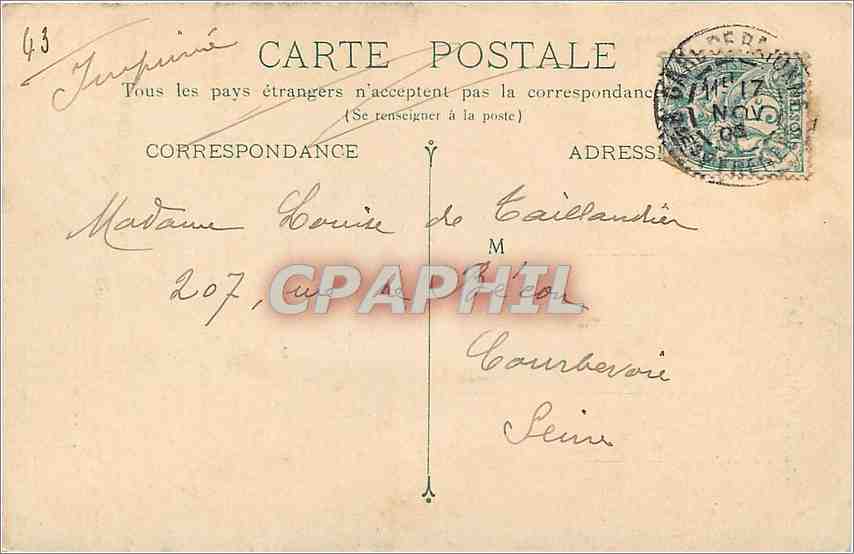 43
Imprimé
CARTE POSTALE
Tous les pays étrangers n'acceptent pas la correspondance
(Se renseigner à la poste)
CORRESPONDANCE
ADRESSE
17
NOV
Madame Louise de Taillandier
M
207, rue de Bécon
CPAPHIL
Courbevoie
Seine